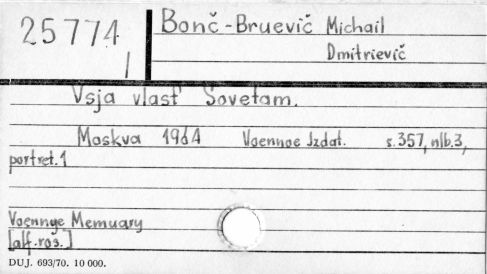 25774
1
Bonč-Bruevič Michail
Dmitrievič
Vsja vlast' Sovetam.
Moskva 1964 Voennoe Izdat. s.357, nlb.3,
portret.1
Voennye Memuary
[alf.ros.]
DUJ. 693/70. 10 000.